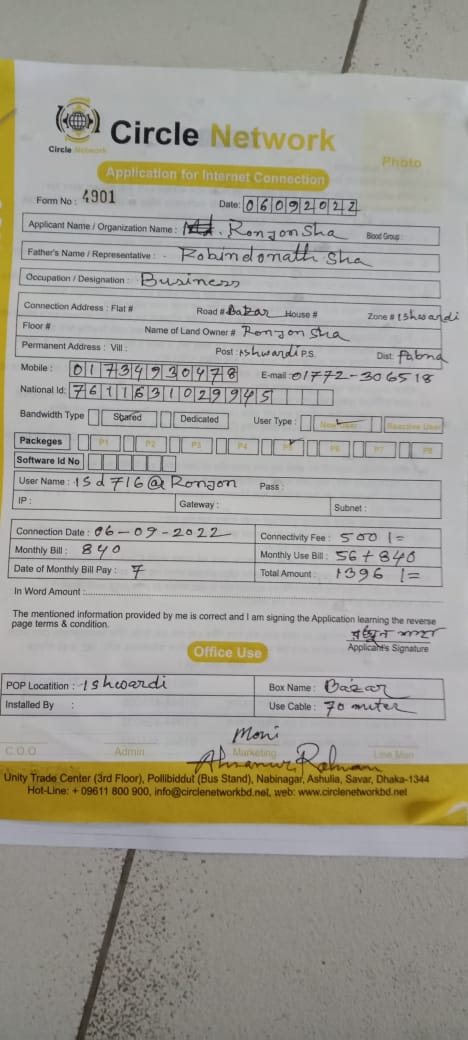 Circle Network
Circle Network
Photo
Application for Internet Connection
Form No : 4901 Date: 06092022
Applicant Name / Organization Name : Md. Ronjon Sha Blood Group :
Father's Name / Representative : - Robindonath Sha
Occupation / Designation : Business
Connection Address : Flat # Road # Bazar House # Zone # Ishwardi
Floor # Name of Land Owner # Ronjon Sha
Permanent Address : Vill : Post : Ishwardi P.S. Dist: Pabna
Mobile : 01734930478 E-mail : 01772-306518
National Id: 7611631029945
Bandwidth Type Shared Dedicated User Type : New User Reactive User
Packeges P1 P2 P3 P4 P5 P6 P7 P8
Software Id No
User Name : ISd716@Ronjon Pass :
IP : Gateway : Subnet :
Connection Date : 06-09-2022 Connectivity Fee : 500/=
Monthly Bill : 840 Monthly Use Bill : 56+840
Date of Monthly Bill Pay : 7 Total Amount : 1396/=
In Word Amount :
The mentioned information provided by me is correct and I am signing the Application learning the reverse
page terms & condition.
Applicant's Signature
Office Use
POP Locatition : Ishwardi Box Name : Bazar
Installed By : Use Cable : 70 meter
Moni
C.O.O Admin Marketing Line Man
Unity Trade Center (3rd Floor), Pollibiddut (Bus Stand), Nabinagar, Ashulia, Savar, Dhaka-1344
Hot-Line: + 09611 800 900, info@circlenetworkbd.net, web: www.circlenetworkbd.net